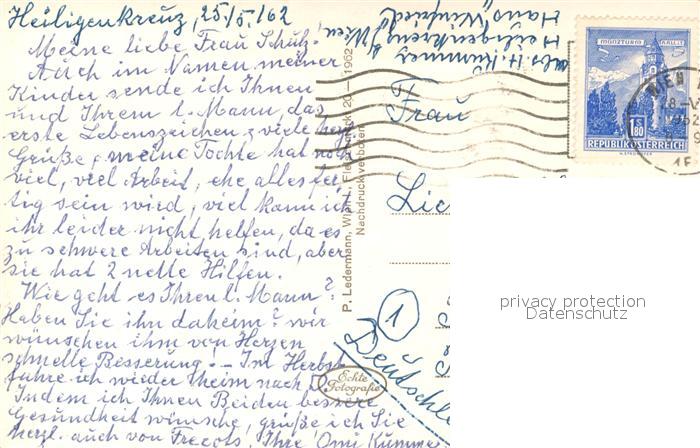 Heiligenkreuz, 25/5./62
Meine liebe Frau Schulz!
Auch im Namen meiner
Kinder sende ich Ihnen
und Ihrem l. Mann, das
erste Lebenszeichen & viele herzl.
Grüße, meine Tochter hat noch
viel, viel Arbeit, ehe alles fer-
tig sein wird, viel kann ich
ihr leider nicht helfen, da es
zu schwere Arbeiten sind, aber
sie hat 2 nette Hilfen.
Wie geht es Ihren l. Mann?
Haben Sie ihn daheim? wir
wünschen ihm von Herzen
schnelle Besserung! – Im Herbst
fahre ich wieder heim nach
Indem ich Ihnen Beiden bessere
Gesundheit wünsche, grüße ich Sie
herzl. auch von Ihre Omi Kummer
H. Kummer
Heiligenkreuz b/ Wien
Haus Winfried
P. Ledermann, Wien I, 1962
Nachdruck verboten
Echte
Fotografie
Frau
Lie
1
Deutschl
MÜNZTURM HALL I.T.
S 1.80
REPUBLIK ÖSTERREICH
WIEN
1962
privacy protection
Datenschutz